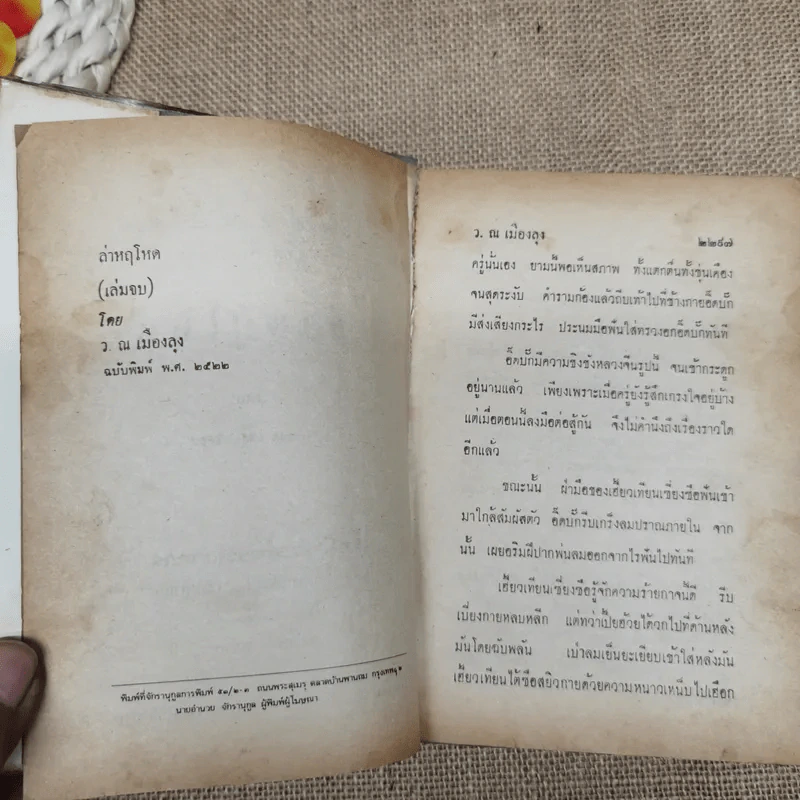 ล่าหฤโหด
(เล่มจบ)
โดย
ว. ณ เมืองลุง
ฉบับพิมพ์ พ.ศ. ๒๕๒๒
พิมพ์ที่จักรานุกูลการพิมพ์ ๕๑/๒-๓ ถนนพระสุเมรุ ตลาดบ้านพานถม กรุงเทพฯ
นายอำนวย จักรานุกูล ผู้พิมพ์ผู้โฆษณา
ว. ณ เมืองลุง
๒๒๕๗
ครู่นั้นเอง ยามนี้พอเห็นสภาพ ทั้งแตกตื่นทั้งขุ่นเคือง
จนสุดระงับ คำรามก้องแล้วถีบเท้าไปที่ข้างกายอิ๊ดบั๊ก
มิส่งเสียงกระไร ประนมมือฟันใส่ทรวงอกอิ๊ดบั๊กทันที
อิ๊ดบั๊กมีความชิงชังหลวงจีนรูปนี้ จนเข้ากระดูก
อยู่นานแล้ว เพียงเพราะเมื่อครู่ยังรู้สึกเกรงใจอยู่บ้าง
แต่เมื่อตอนนี้ลงมือต่อสู้กัน จึงไม่คำนึงถึงเรื่องราวใด
อีกแล้ว
ขณะนั้น ฝ่ามือของเฮี้ยวเทียนเซี่ยงซือฟันเข้า
มาใกล้สัมผัสตัว อิ๊ดบั๊กรีบเกร็งลมปราณภายใน จาก
นั้น เผยอริมฝีปากพ่นลมออกจากไรฟันไปทันที
เฮี้ยวเทียนเซี่ยงซือรู้จักความร้ายกาจนี้ดี รีบ
เบี่ยงกายหลบหลีก แต่ทว่าเปี๊ยฮ้วยได้วกไปที่ด้านหลัง
มันโดยฉับพลัน เป่าลมเย็นยะเยียบเข้าใส่หลังมัน
เฮี้ยวเทียนไต้ซือสยิวกายด้วยความหนาวเหน็บ ไปเฮือก